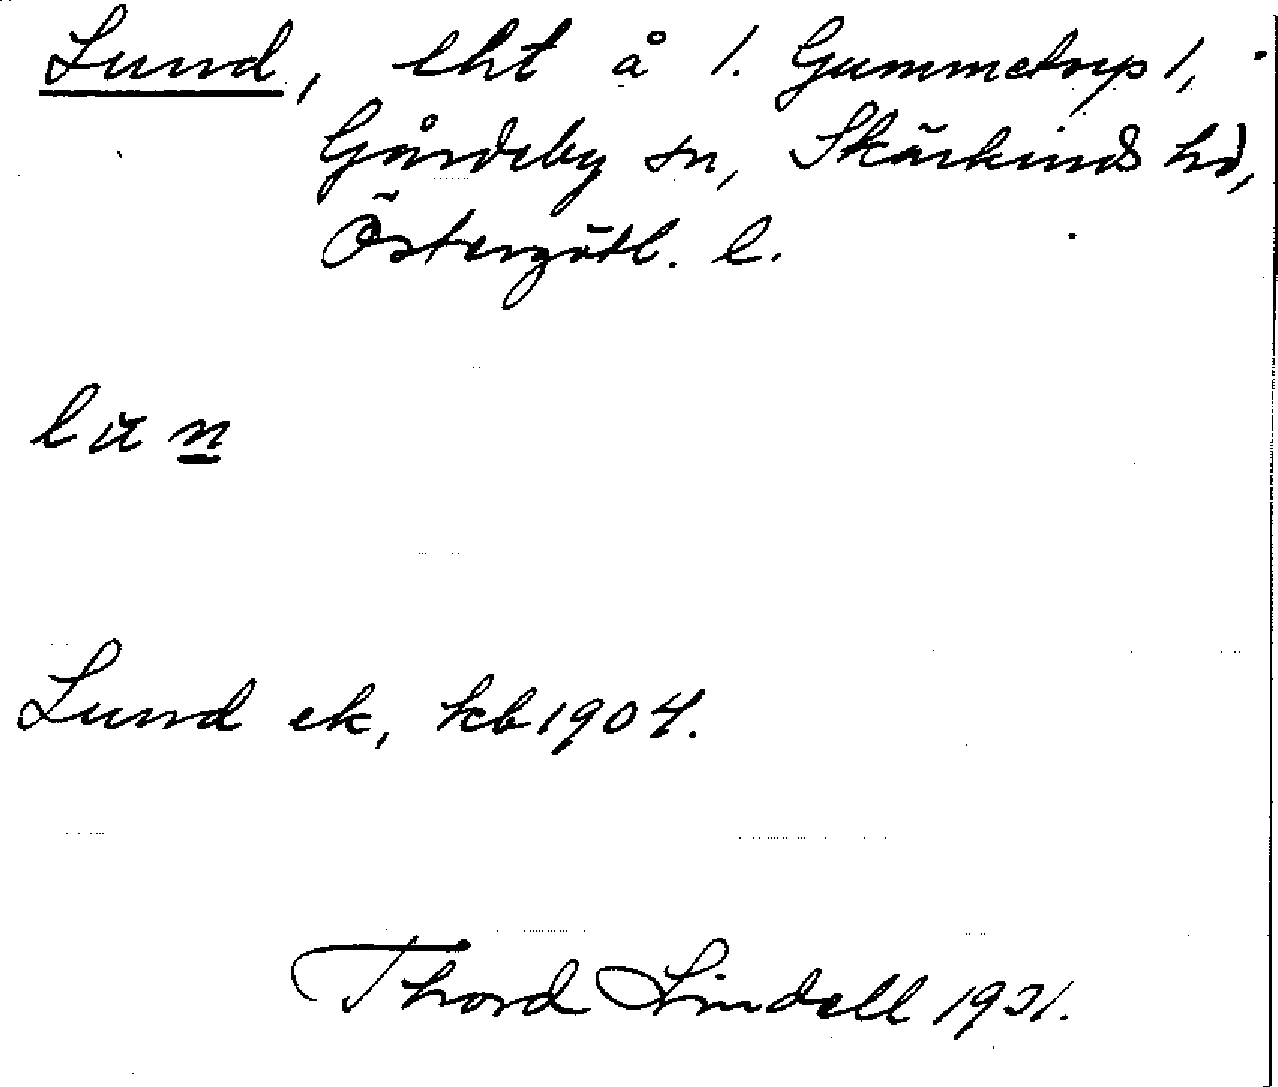 Lund, lht å 1. Gummetorp 1, i
Gårdeby sn, Skärkinds hd,
Östergötl. l.
lun
Lund ek, kb 1904.
Thord Lindell 1931.